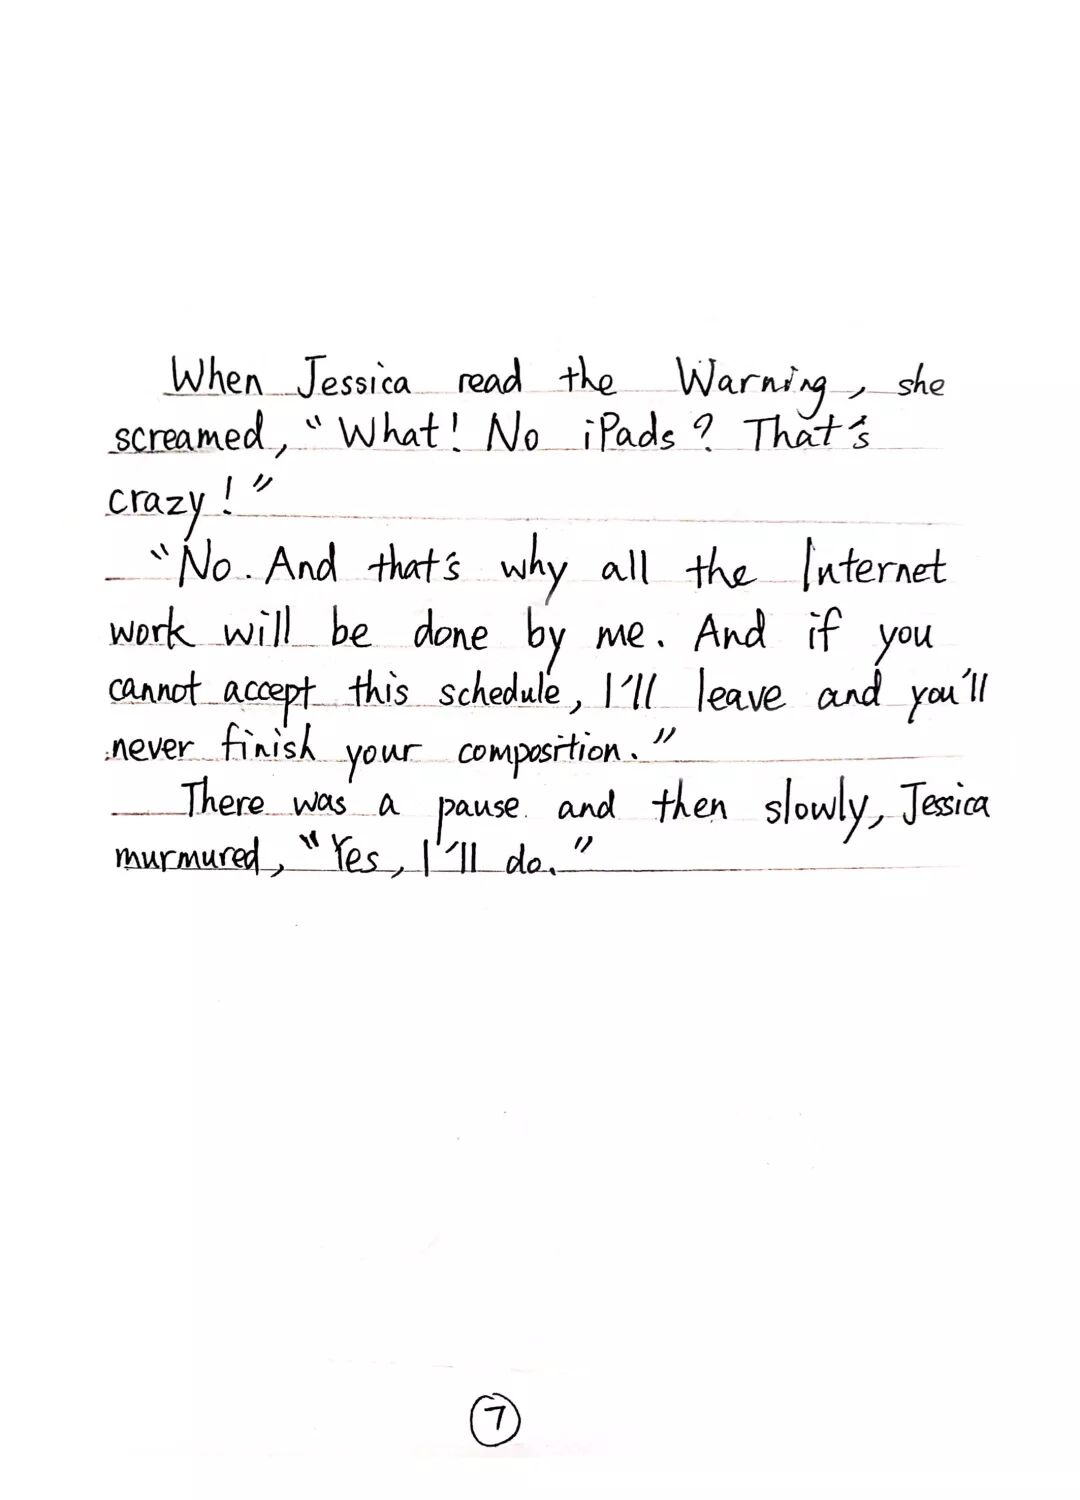 When Jessica read the Warning, she
screamed, "What! No iPads? That's
crazy!"
"No. And that's why all the Internet
work will be done by me. And if you
cannot accept this schedule, I'll leave and you'll
never finish your composition."
There was a pause and then slowly, Jessica
murmured, "Yes, I'll do."
7